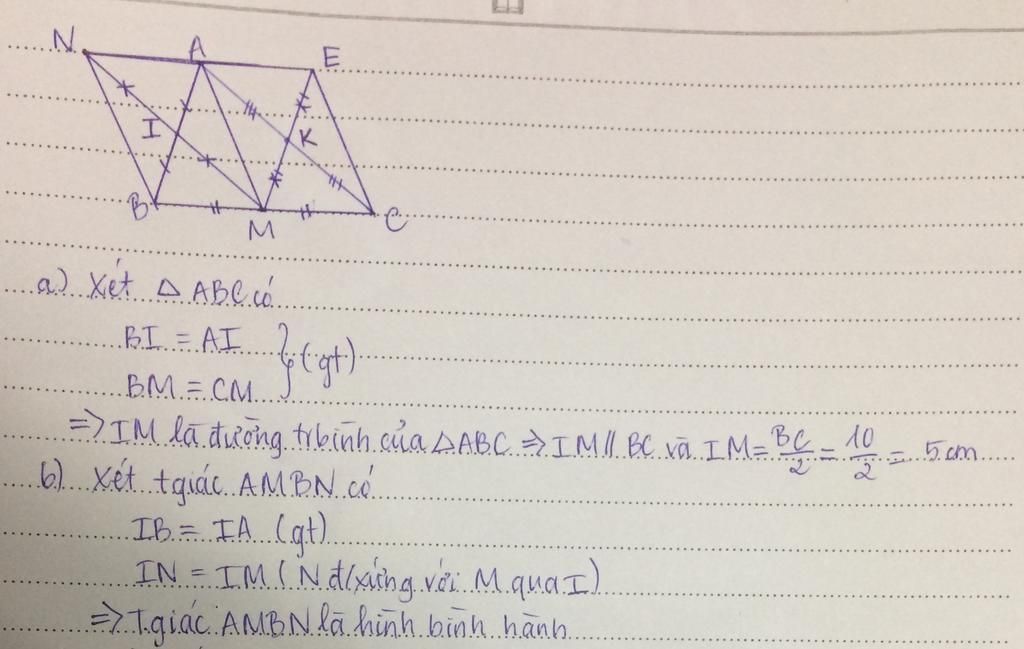 N A E
I K
B M C
a) Xét △ ABC có
BI = AI
BM = CM } (gt)
=> IM là đường trbình của △ABC => IM // BC và IM = BC/2 = 10/2 = 5cm
b) Xét tgiác AMBN có
IB = IA (gt)
IN = IM (N đ/xứng với M qua I)
=> T.giác AMBN là hình bình hành